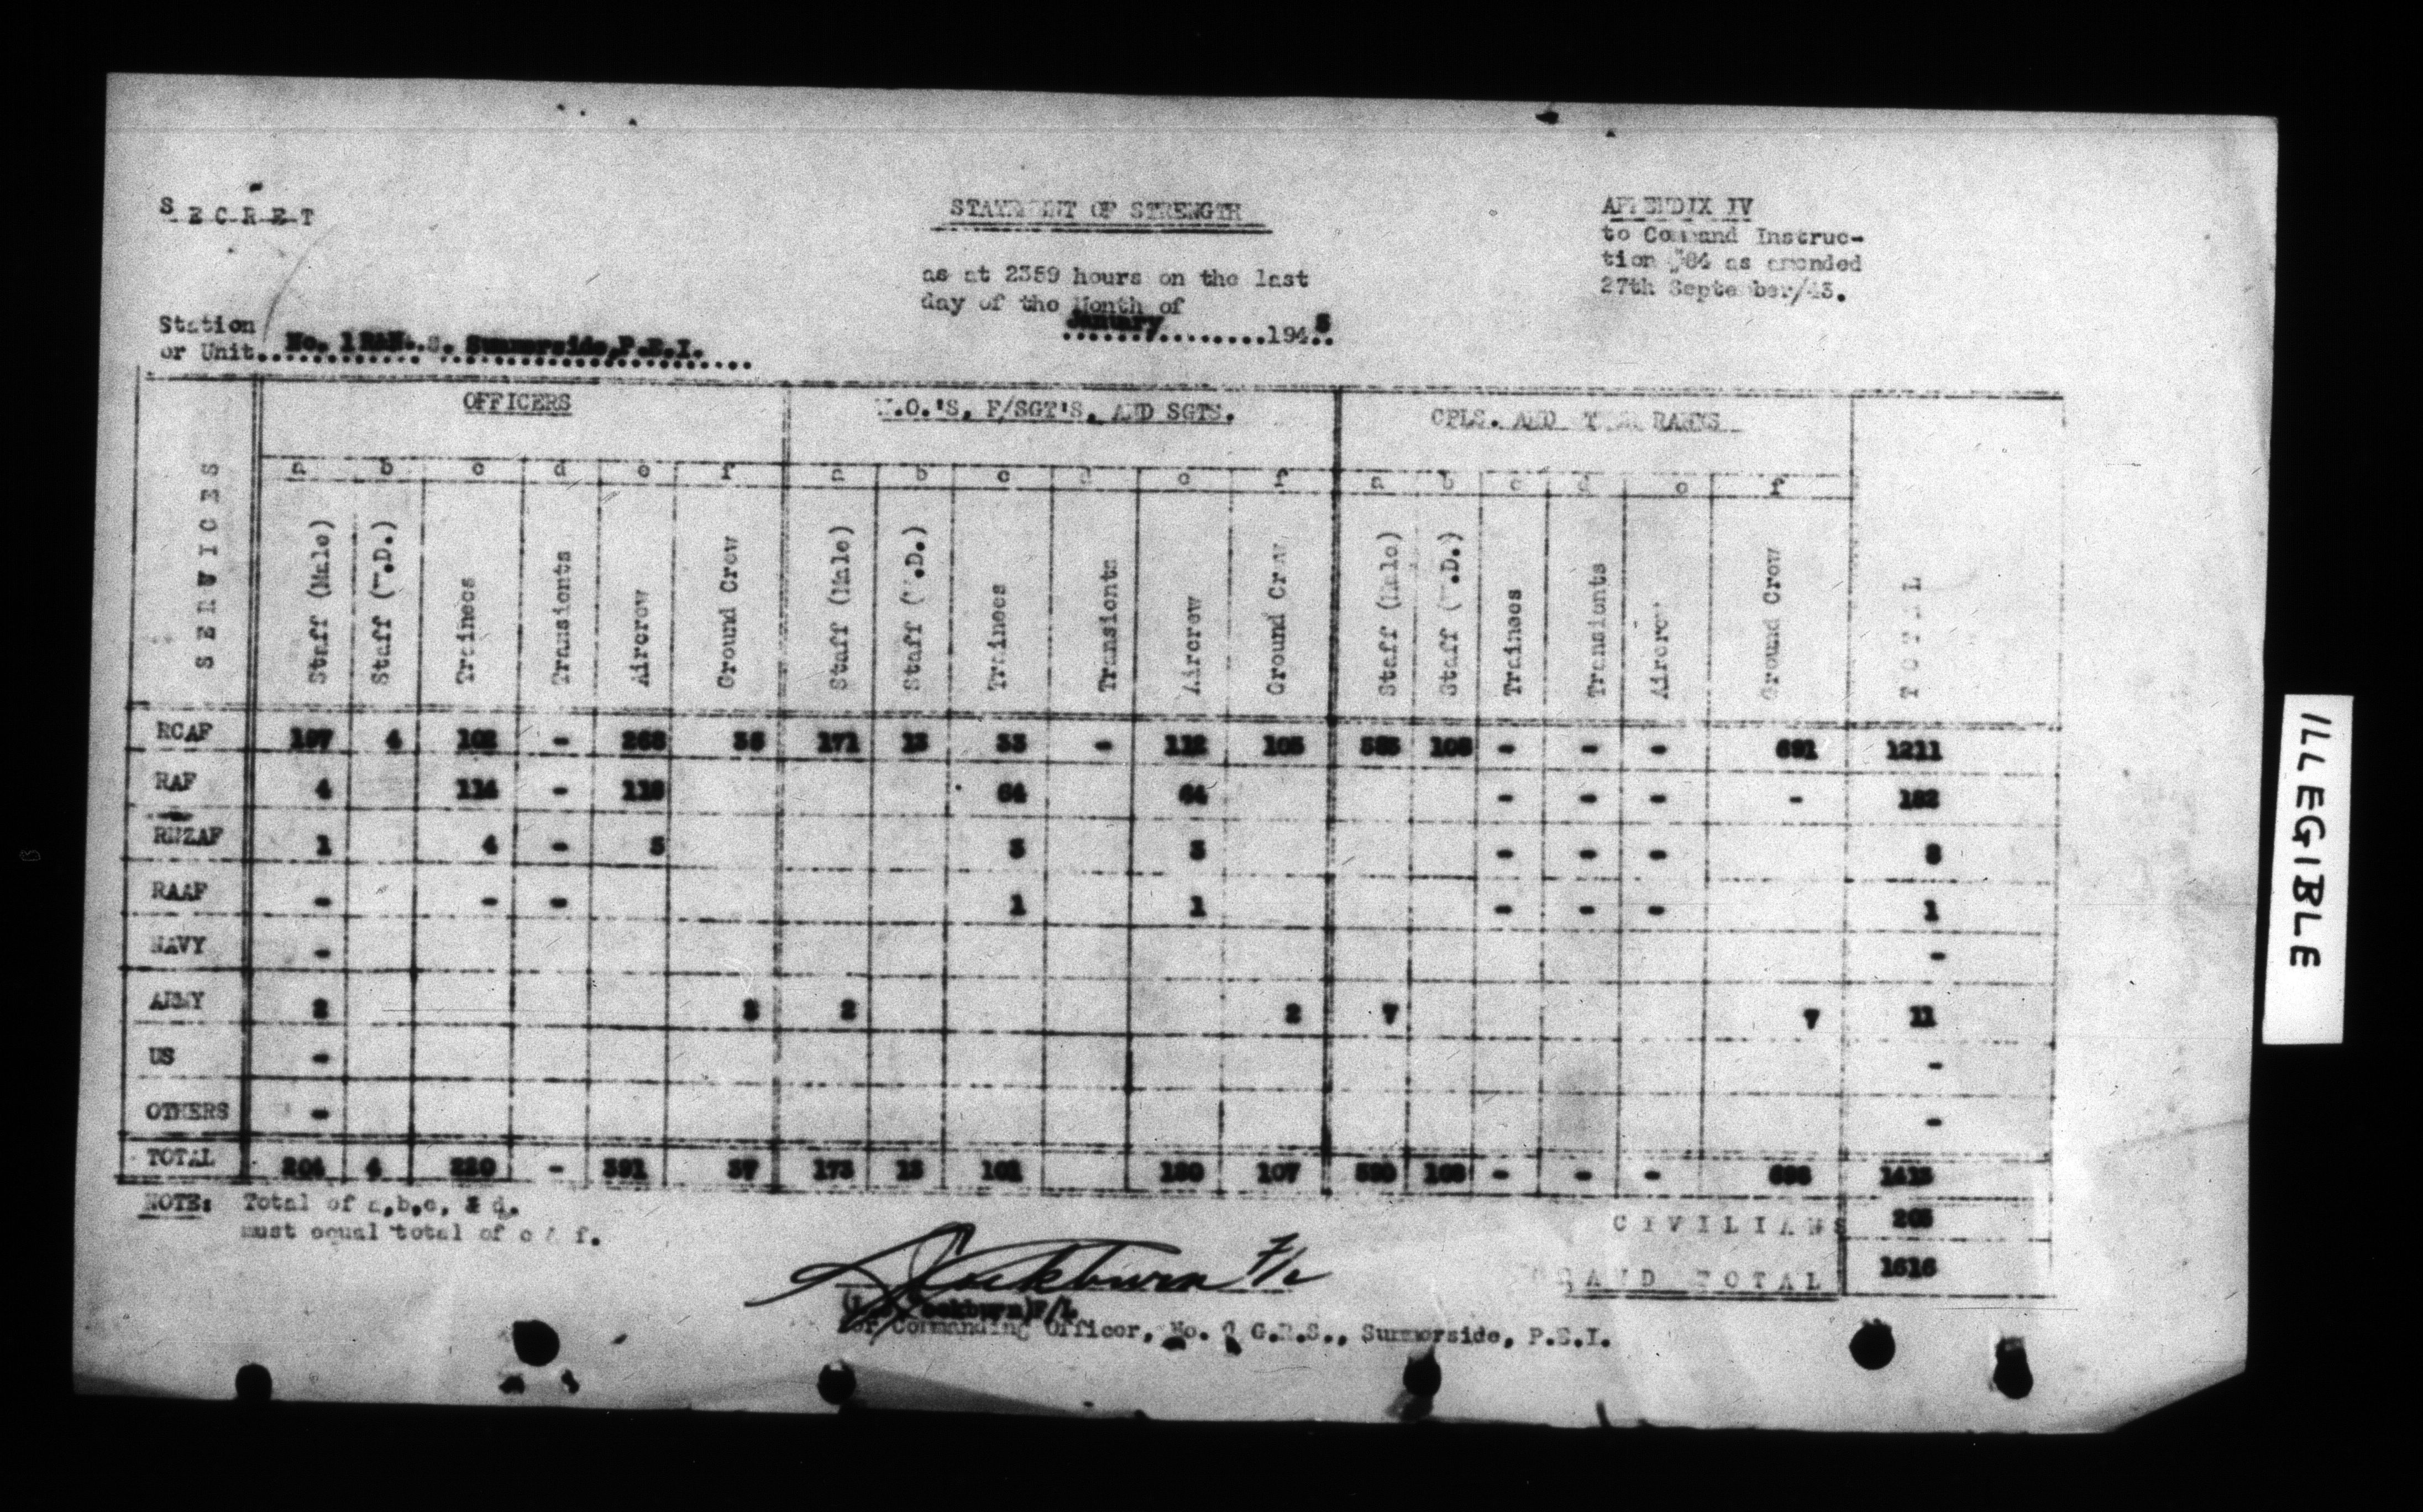 SECRET
STATEMENT OF STRENGTH
APPENDIX IV
to Command Instruc-
tion #84 as amended
27th September/43.
as at 2359 hours on the last
day of the Month of
January 1945
Station
or Unit No. 1 RAN. S. Summerside, P.E.I.
SERVICES OFFICERS W.O.'S, F/SGT'S, AND SGTS. CPLS. AND RANKS TOTAL
a b c d e f a b c d e f a b c d e f
Staff (Male) Staff (W.D.) Trainees Transients Aircrew Ground Crew Staff (Male) Staff (W.D.) Trainees Transients Aircrew Ground Crew Staff (Male) Staff (W.D.) Trainees Transients Aircrew Ground Crew
RCAF 197 4 102 - 268 35 171 13 33 - 112 105 583 108 - - - 691 1211
RAF 4 114 - 118 64 64 - - - - 182
RNZAF 1 4 - 5 3 3 - - - 8
RAAF - - - 1 1 - - - 1
NAVY - -
ARMY 2 2 2 2 7 7 11
US - -
OTHERS - -
TOTAL 204 4 220 - 391 37 173 13 101 180 107 590 108 - - - 698 1413
NOTE: Total of a,b,c, & d.
must equal total of e & f.
CIVILIANS 203
GRAND TOTAL 1616
Cockburn F/L
Cockburn) F/L
for Commanding Officer, No. 1 G.R.S., Summerside, P.E.I.
ILLEGIBLE